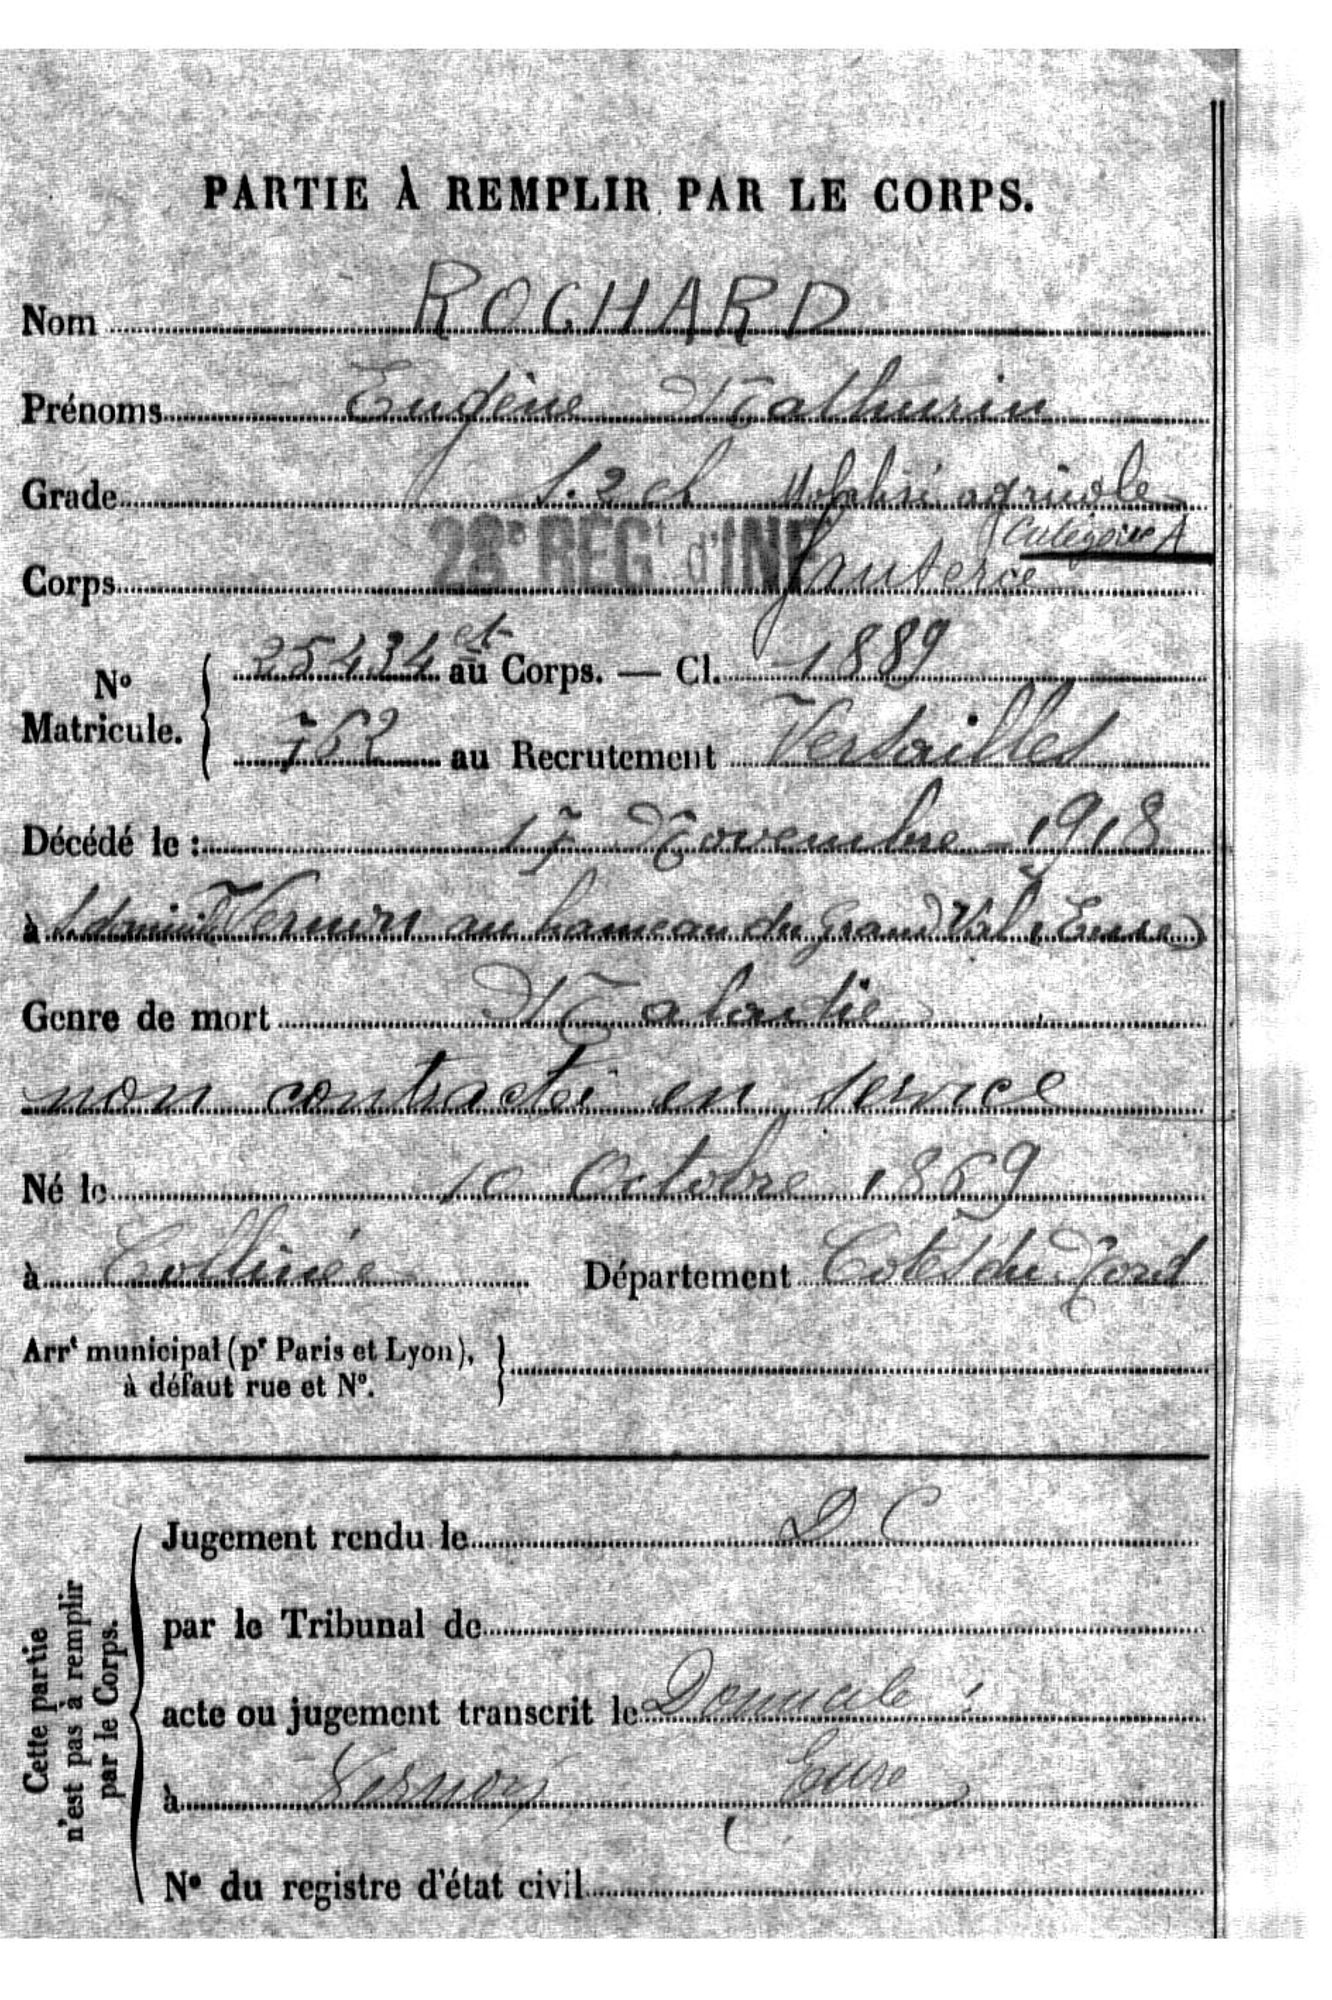 PARTIE À REMPLIR PAR LE CORPS.
Nom ROCHARD
Prénoms Eugène Mathurin
Grade S. 2 cl Mobilisé agricole
Catégorie A
Corps 28e REGt d'INF
Nº Matricule. 25434 au Corps. — Cl. 1889
762 au Recrutement Versailles
Décédé le : 17 Novembre 1918
à Vernon au hameau du Grand Val (Eure)
Genre de mort Maladie
non contractée en service
Né le 10 Octobre 1869
à Collinée Département Côtes du Nord
Arrt municipal (pr Paris et Lyon),
à défaut rue et Nº.
Cette partie n'est pas à remplir par le Corps.
Jugement rendu le D C
par le Tribunal de
acte ou jugement transcrit le
à Vernon Eure
Nº du registre d'état civil